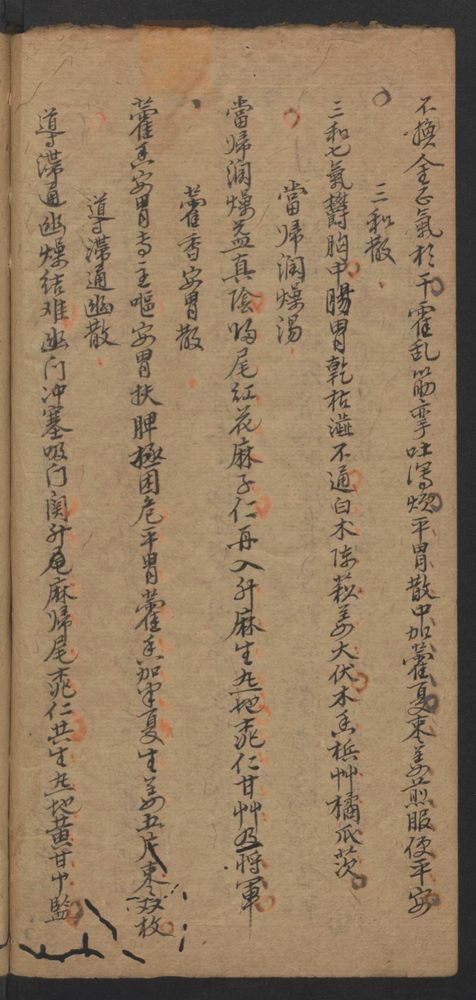 不換金正氣於干霍乱筋孿吐瀉煩平胃散中加藿夏束姜煎服便平安
三和散
三和七氣欝胸中腸胃乾枯澁不通白木陈菘姜大伏木香梹艸橘瓜芡
當㷌润燥湯
當㷌润燥益真陰㷌尾紅花麻子仁再入升麻生𤍠地桃仁甘艸乃將軍
藿香安胃散
藿香安胃专主嘔安胃扶脾極困危平胃藿香加半夏生姜五片束双枚
導滞通幽散
導滞通幽燥结难幽门冲塞吸门関升麻㷌尾桃仁共生𤍠地黄甘中監